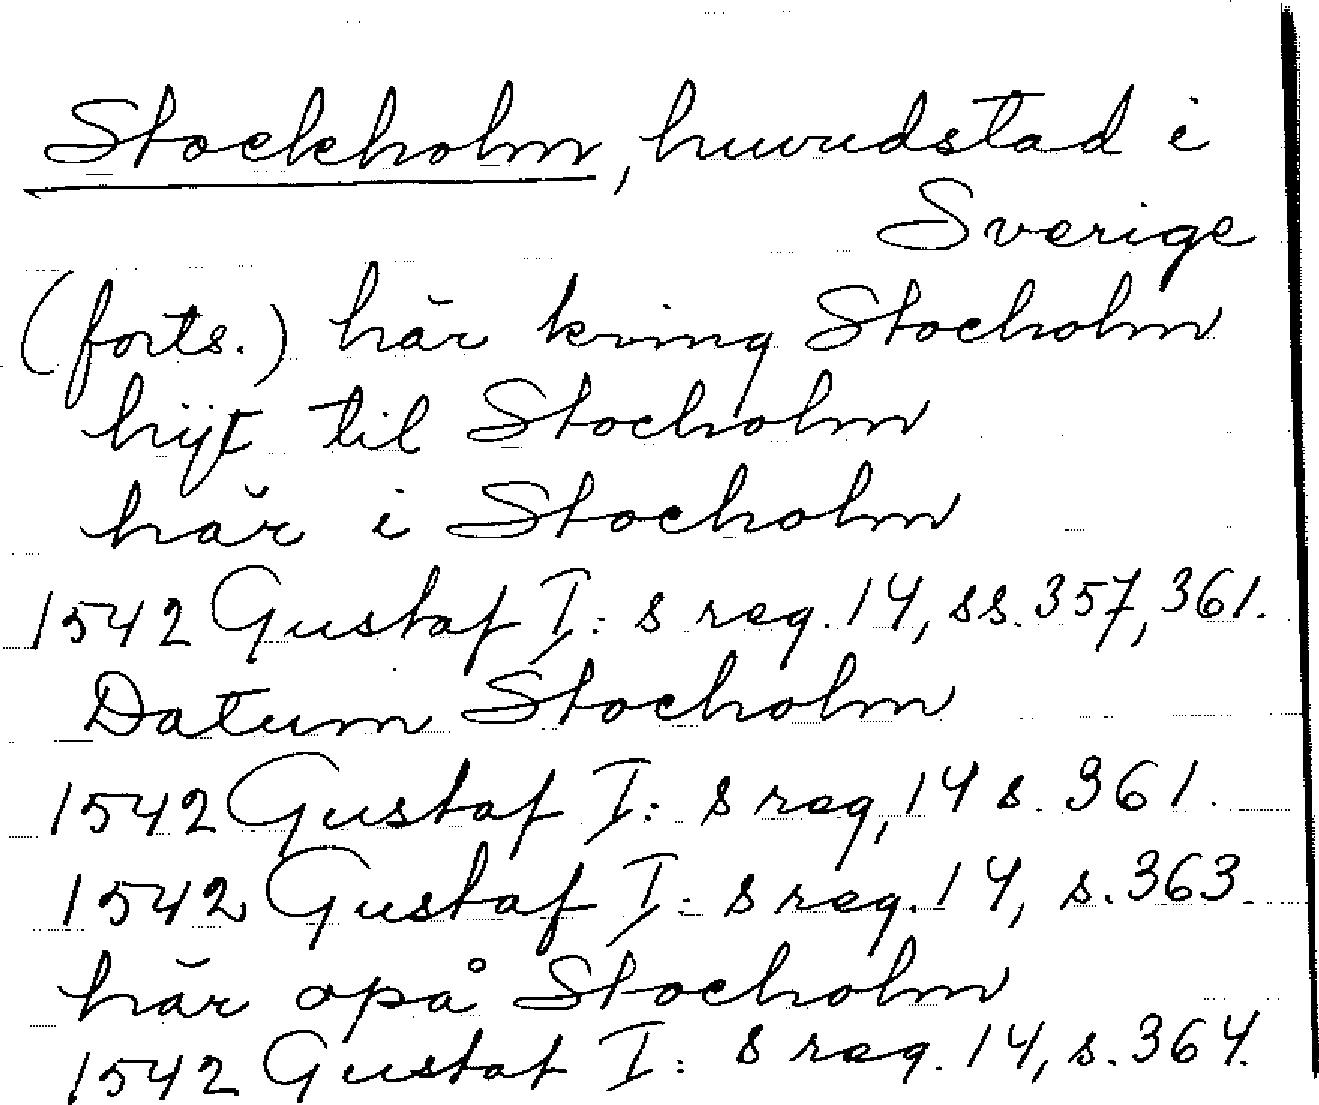 Stockholm, huvudstad i
Sverige
(forts.) här kring Stocholm
hijt til Stocholm
här i Stocholm
1542 Gustaf I: s reg. 14, ss. 357, 361.
Datum Stocholm
1542 Gustaf I: s reg, 14 s. 361.
1542 Gustaf I: s reg. 14, s. 363.
här opå Stocholm
1542 Gustaf I: s reg. 14, s. 364.